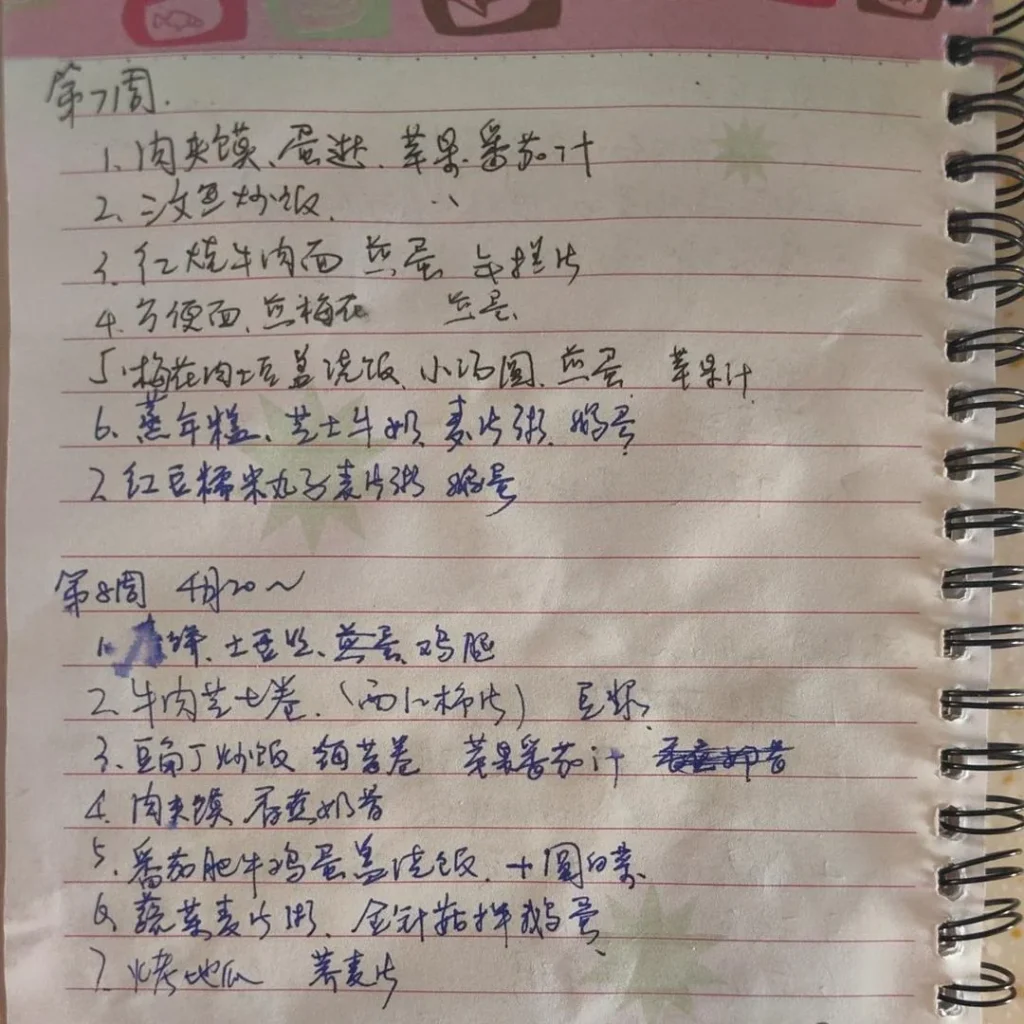 第7周.
1. 肉夹馍、蛋挞、苹果番茄汁
2. 三文鱼炒饭. 、、
3. 红烧牛肉面 煎蛋
4. 方便面、煎梅花 煎蛋
5. 梅花肉土豆盖浇饭、小汤圆、煎蛋 苹果汁
6. 蒸年糕、芝士牛奶麦片粥、鹅蛋
7 红豆糯米丸子麦片粥 鹅蛋
第8周 4月20~
1. 饼、土豆丝、煎蛋、鸡腿
2. 牛肉芝士卷、(西) 豆浆
3. 豆角丁炒饭 苹果番茄汁
4. 肉夹馍 香蕉奶昔
5. 番茄肥牛鸡蛋盖浇饭、+圆白菜
6 蔬菜麦片粥、金针菇拌鹅蛋
7. 烤地瓜 荞麦片